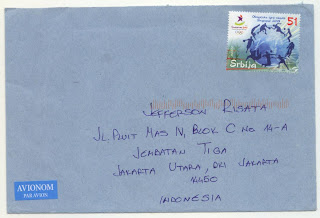 51
Srbija
JEFFERSON RISATA
JL. PLUIT MAS N, BLOK C NO 14-A
JEMBATAN TIGA
JAKARTA UTARA, DKI JAKARTA
14450
INDONESIA
AVIONOM
PAR AVION